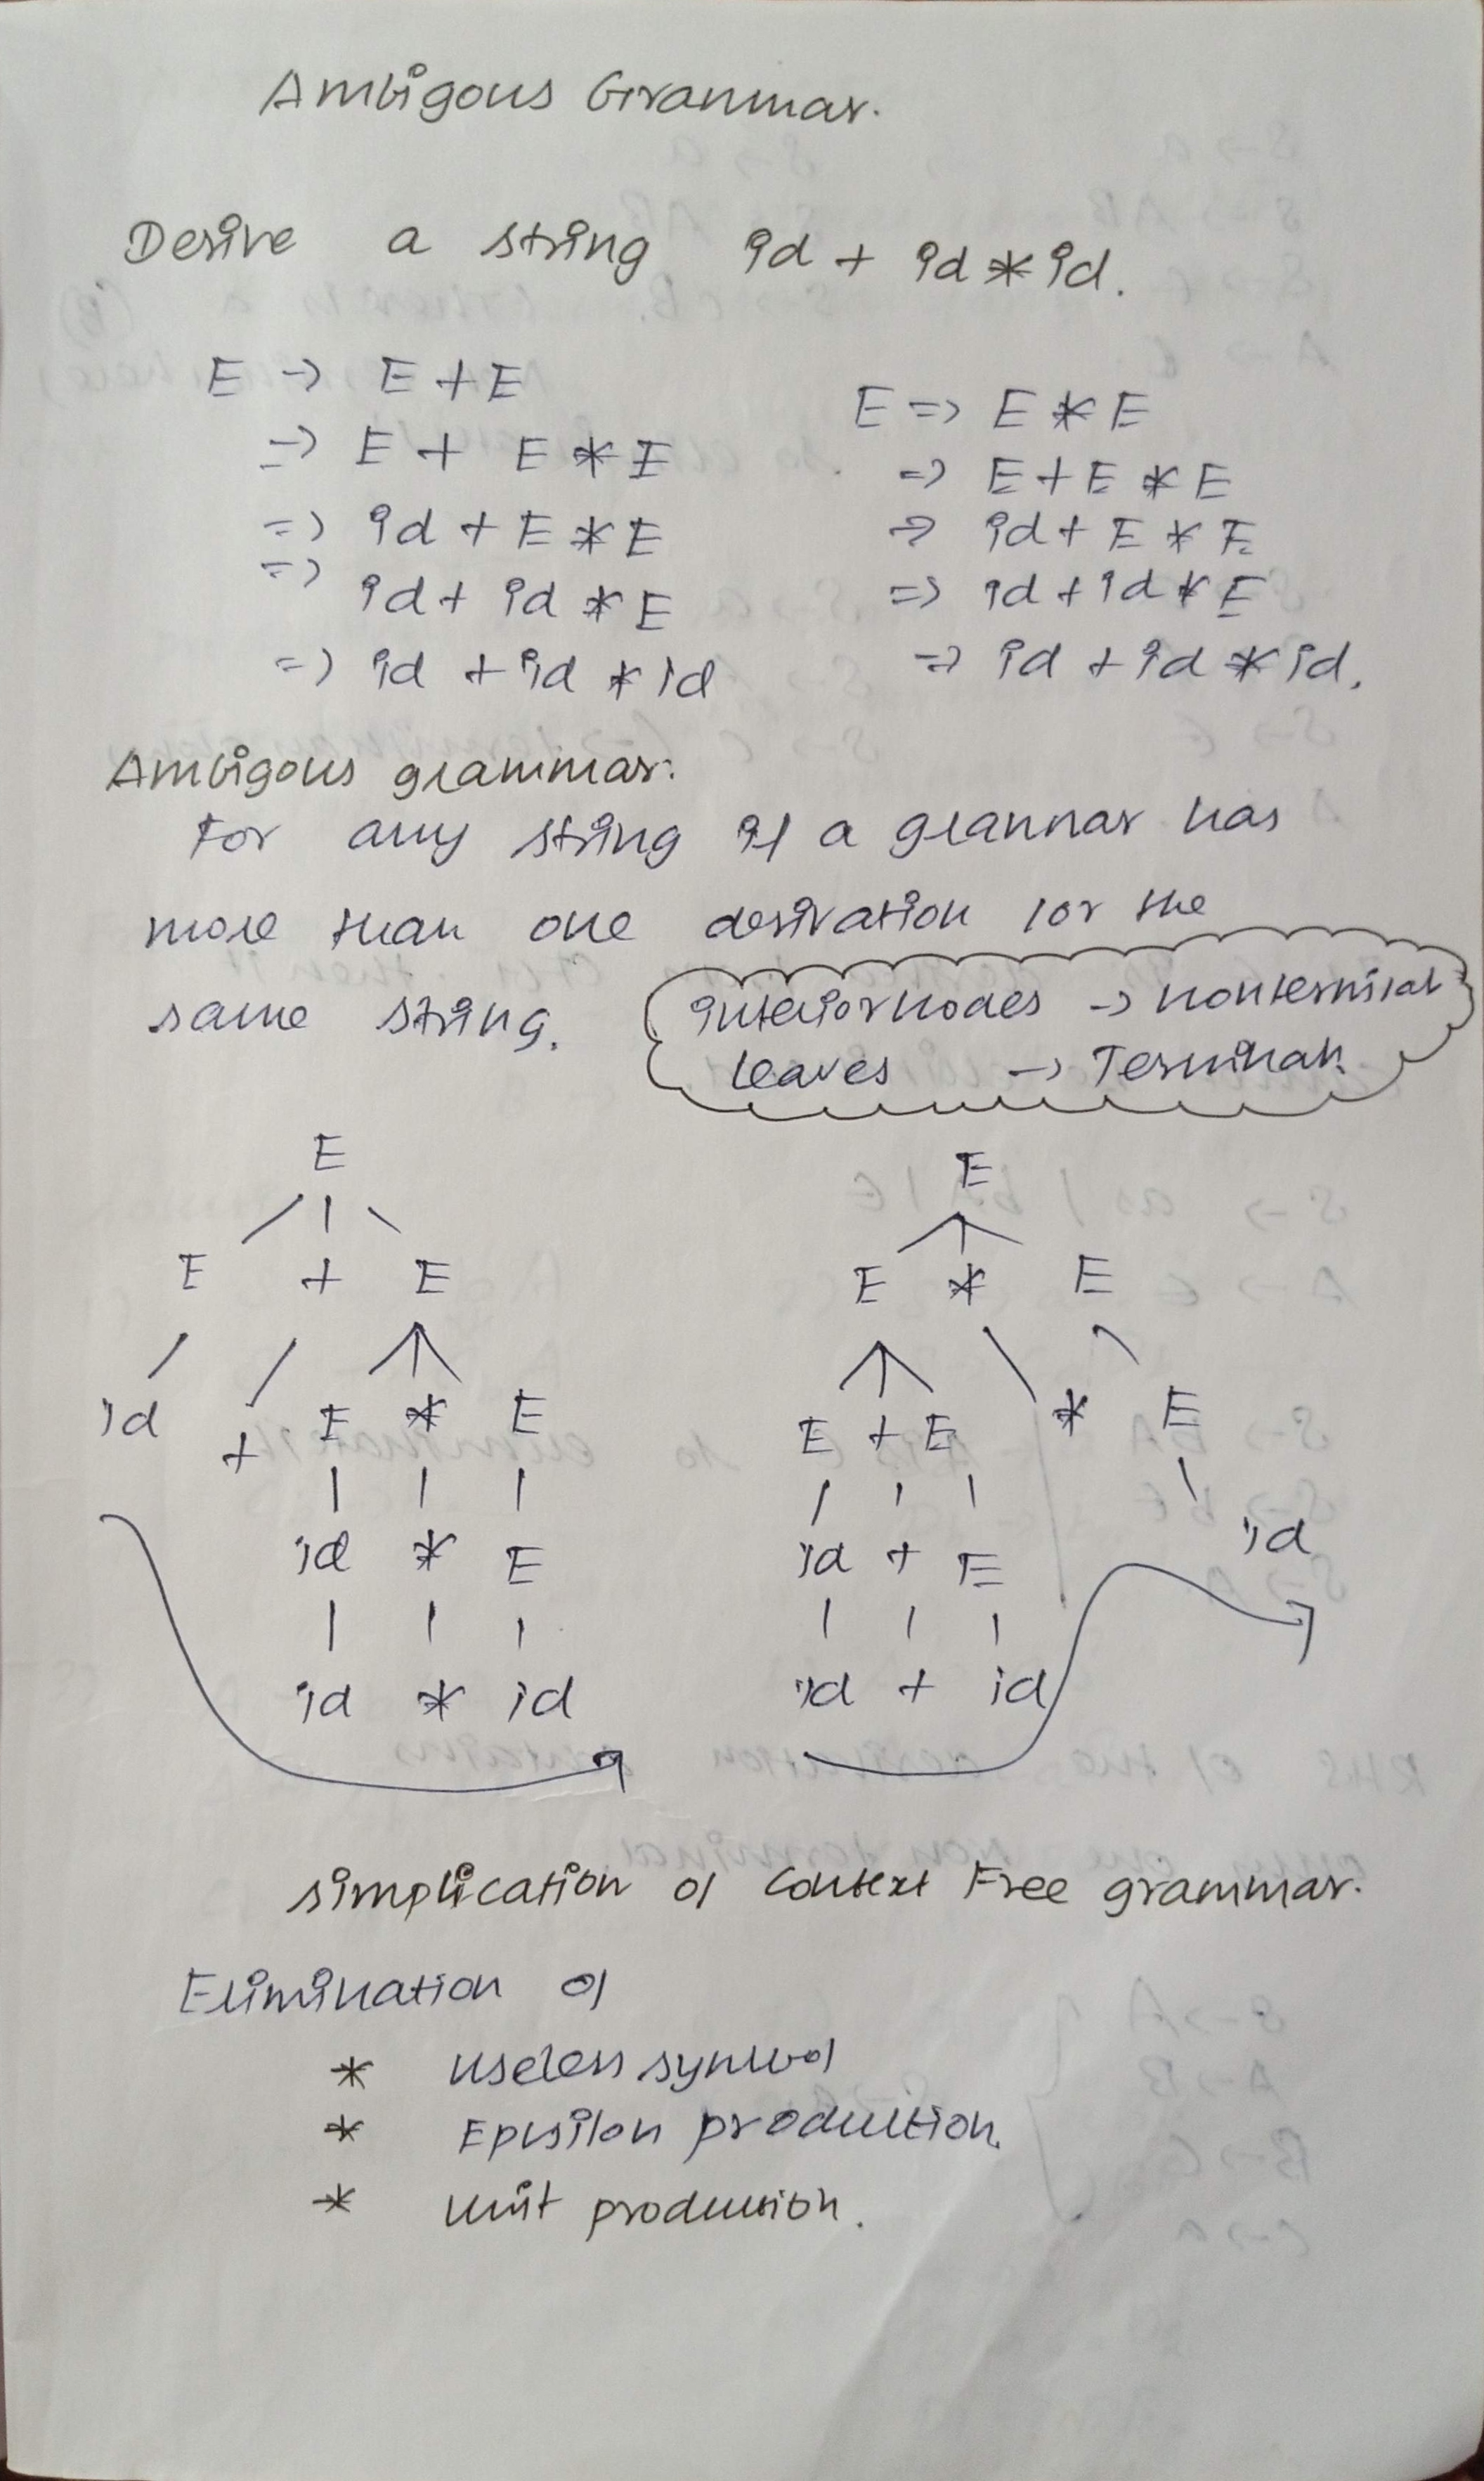 Ambigous Grammar.
Derive a string id + id * id.
E -> E + E
=> E + E * E
=> id + E * E
=>
id + id * E
=> id + id * id
E => E * E
=> E + E * E
=> id + E * E
=> id + id * E
=> id + id * id.
Ambigous grammar:
For any string if a grannar has
more than one derivation for the
same string.
interior nodes -> nonterminal
leaves -> Terminals
E
E + E
id + E * E
id * E
id * id
E
E * E
E + E * E
id + E id
id + id
simplication of Context Free grammar.
Elimination of
* useless symbol
* Epsilon production.
* Unit production.